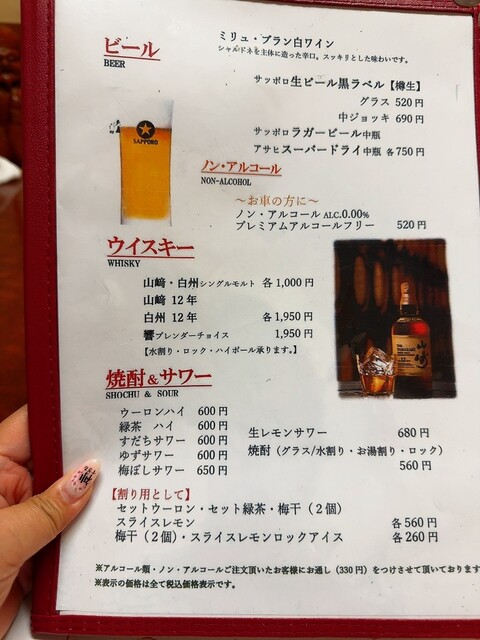 ミリュ・ブラン白ワイン
シャルドネを主体に造った辛口。スッキリとした味わいです。
ビール
BEER
サッポロ生ビール黒ラベル【樽生】
グラス 520円
中ジョッキ 690円
サッポロラガービール中瓶
アサヒスーパードライ中瓶 各750円
SAPPORO
ノン・アルコール
NON-ALCOHOL
～お車の方に～
ノン・アルコール ALC.0.00%
プレミアムアルコールフリー 520円
ウイスキー
WHISKY
山﨑・白州シングルモルト 各1,000円
山﨑 12年
白州 12年 各1,950円
響ブレンダーチョイス 1,950円
【水割り・ロック・ハイボール承ります。】
山崎
焼酎&サワー
SHOCHU & SOUR
ウーロンハイ 600円
緑茶 ハイ 600円
すだちサワー 600円
ゆずサワー 600円
梅ぼしサワー 650円
生レモンサワー 680円
焼酎（グラス/水割り・お湯割り・ロック）
560円
【割り用として】
セットウーロン・セット緑茶・梅干（2個）
スライスレモン 各560円
梅干（2個）・スライスレモンロックアイス 各260円
※アルコール類・ノン・アルコールご注文頂いたお客様にお通し（330円）をつけさせて頂いております
※表示の価格は全て税込価格表示です。